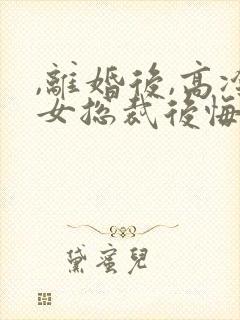 ,離婚後,高冷
女總裁後悔
黛蜜兒